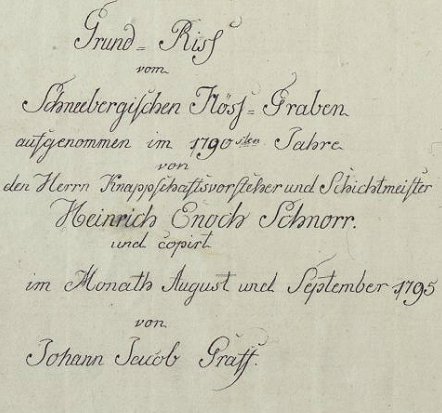 Grund = Riss
vom
Schneebergischen Flöss = Graben
aufgenommen im 1790sten Jahre
von
den Herrn Knappschaftsvorsteher und Schichtmeister
Heinrich Enoch Schnorr.
und copirt
im Monath August und September 1795
von
Johann Jacob Gräff.